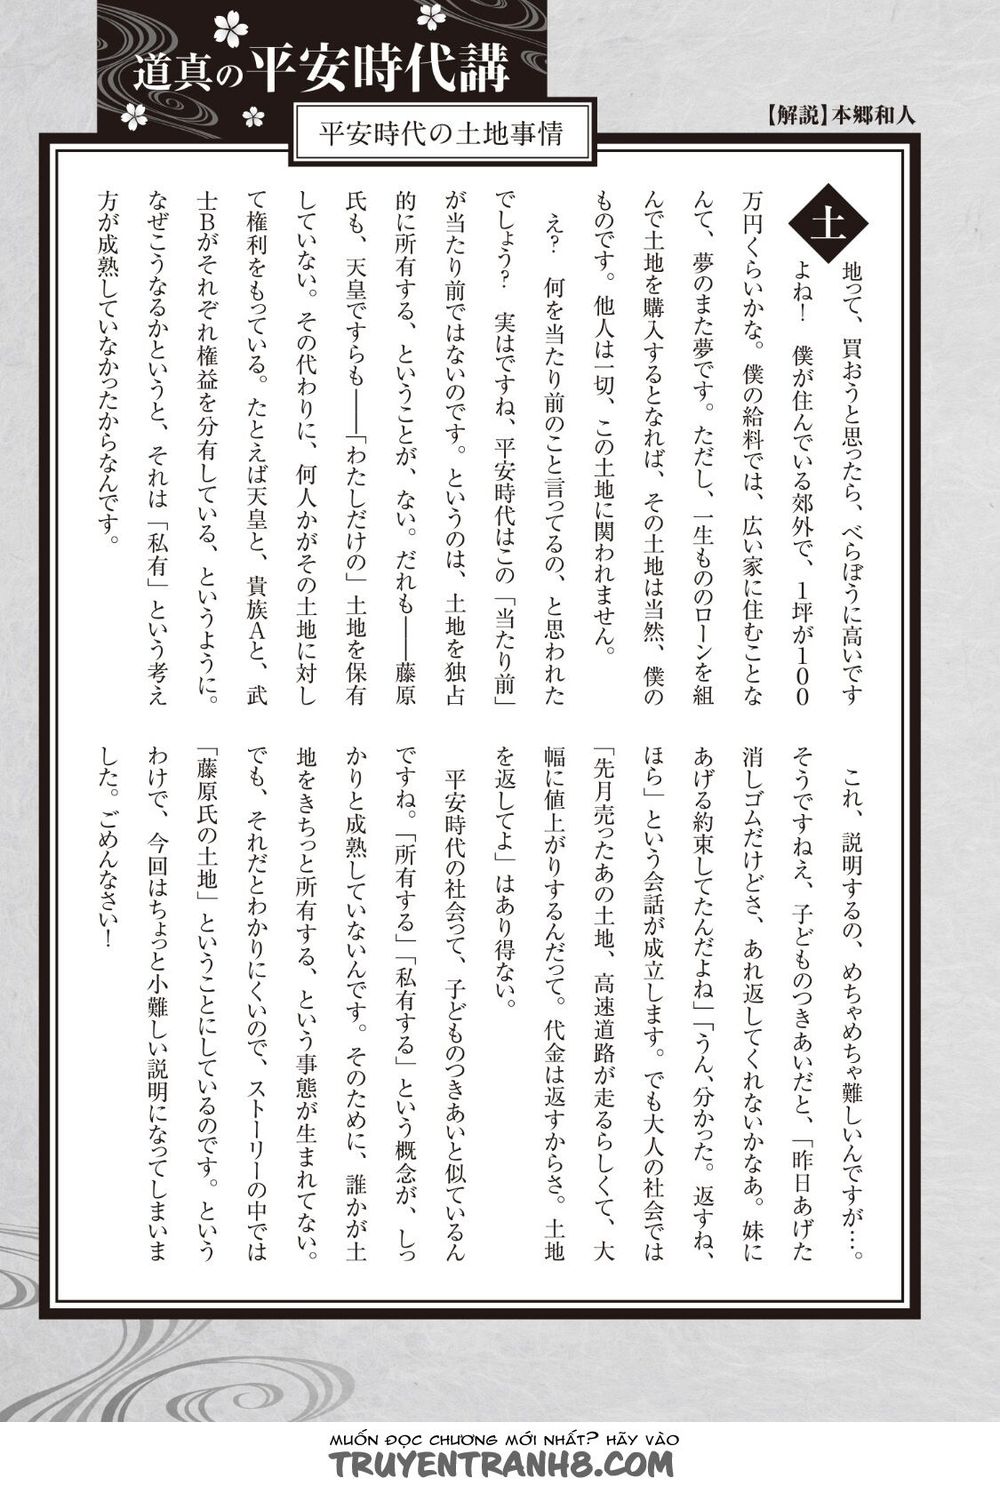 道真の平安時代講
平安時代の土地事情
【解説】本郷和人
土地って、買おうと思ったら、べらぼうに高いです
よね！　僕が住んでいる郊外で、1坪が100
万円くらいかな。僕の給料では、広い家に住むことな
んて、夢のまた夢です。ただし、一生もののローンを組
んで土地を購入するとなれば、その土地は当然、僕の
ものです。他人は一切、この土地に関われません。
え？　何を当たり前のこと言ってるの、と思われた
でしょう？　実はですね、平安時代はこの「当たり前」
が当たり前ではないのです。というのは、土地を独占
的に所有する、ということが、ない。だれも——藤原
氏も、天皇ですらも——「わたしだけの」土地を保有
していない。その代わりに、何人かがその土地に対し
て権利をもっている。たとえば天皇と、貴族Aと、武
士Bがそれぞれ権益を分有している、というように。
なぜこうなるかというと、それは「私有」という考え
方が成熟していなかったからなんです。
これ、説明するの、めちゃめちゃ難しいんですが…。
そうですねえ、子どものつきあいだと、「昨日あげた
消しゴムだけどさ、あれ返してくれないかなあ。妹に
あげる約束してたんだよね」「うん、分かった。返すね、
ほら」という会話が成立します。でも大人の社会では
「先月売ったあの土地、高速道路が走るらしくて、大
幅に値上がりするんだって。代金は返すからさ。土地
を返してよ」はあり得ない。
平安時代の社会って、子どものつきあいと似ているん
ですね。「所有する」「私有する」という概念が、しっ
かりと成熟していないんです。そのために、誰かが土
地をきちっと所有する、という事態が生まれてない。
でも、それだとわかりにくいので、ストーリーの中では
「藤原氏の土地」ということにしているのです。という
わけで、今回はちょっと小難しい説明になってしまいま
した。ごめんなさい！
MUỐN ĐỌC CHƯƠNG MỚI NHẤT? HÃY VÀO
TRUYENTRANH8.COM